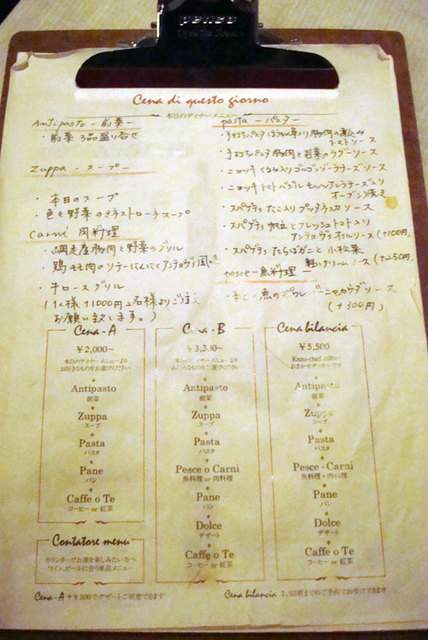 penco
Cena di questo giorno
本日のディナーメニュー
Antipasto - 前菜 -
・前菜 3品盛り合せ
Zuppa - スープ -
・本日のスープ
・色々野菜のミネストローネスープ
Carni 肉料理
・網走産豚肉と野菜のグリル
・鶏モモ肉のソテーにんにくアンチョヴィ風味
・牛ロースグリル
(1人様+1000円 2名様よりご注文
お願い致します。)
pasta - パスタ -
・手打ちパスタ ほうれん草入り 豚肉の煮込み
トマトソース
・手打ちパスタ 豚肉と若菜のラグーソース
・ニョッキ くるみ入りゴルゴンゾーラチーズソース
・ニョッキ トマトバジル モッツァレラチーズ入り
オーブン焼き
・スパゲティ たこ入りプッタネスカソース
・スパゲティ とフレッシュトマト入り
アンチョヴィオイルソース (+100円)
・スパゲティ たらばガニと小松菜
軽いクリームソース (+250円)
pesce - 魚料理
(+300円)
Cena-A
¥2,000~
本日のディナーメニューより
お好きなものをお選びください
Antipasto
前菜
Zuppa
スープ
Pasta
パスタ
Pane
パン
Caffe o Te
コーヒー or 紅茶
Contatore menu
カウンターでお茶を楽しみたい方へ
ワイン、ビールに合う単品メニュー
Cena-A +¥300でデザートご用意できます
Cena-B
¥3,300~
Antipasto
前菜
Zuppa
スープ
Pasta
パスタ
Pesce o Carni
魚料理 or 肉料理
Pane
パン
Dolce
デザート
Caffe o Te
コーヒー or 紅茶
Cena bilancia
¥5,500
Kazu-chef お任せ
おまかせディナーです
Antipasto
前菜
Zuppa
スープ
Pasta
パスタ
Pesce・Carni
魚料理・肉料理
Pane
パン
Dolce
デザート
Caffe o Te
コーヒー or 紅茶
Cena bilancia は、3日前までのご予約でお受けできます